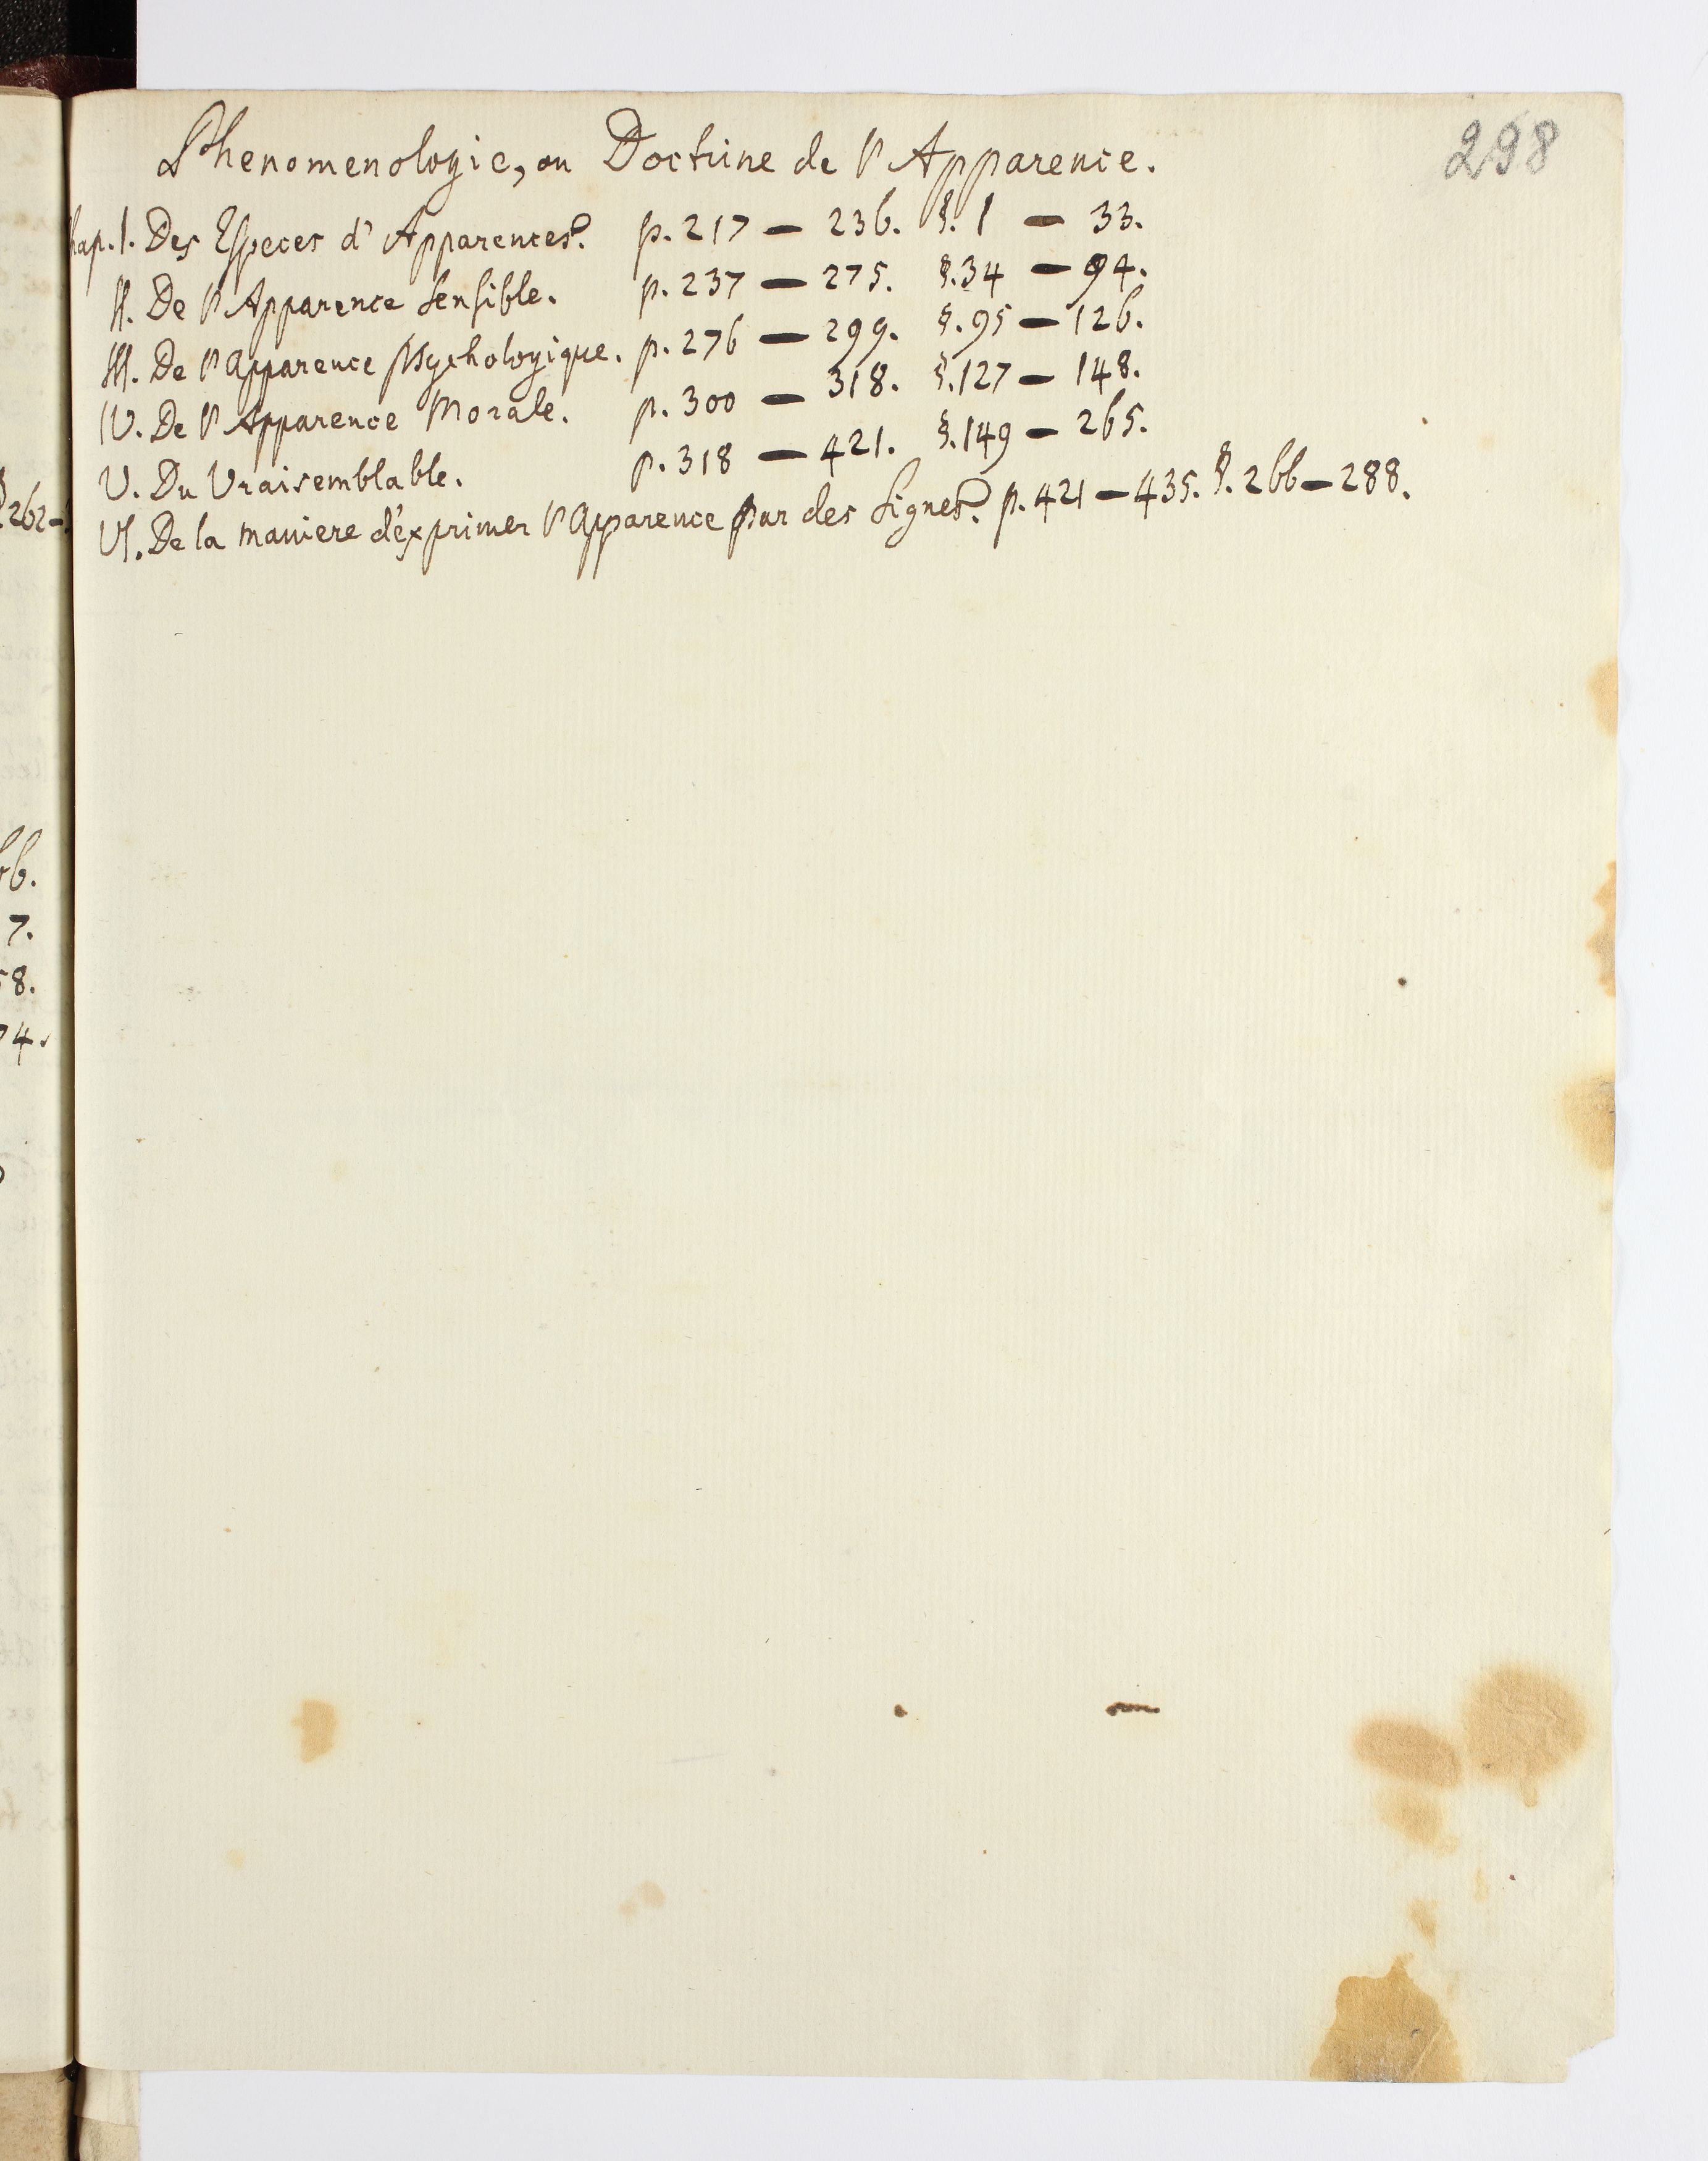 298
Phenomenologie, ou Doctrine de l'Apparence.
hap. I. Des Especes d'Apparences. p. 217 — 236. §. 1 — 33.
II. De l'Apparence Sensible. p. 237 — 275. §. 34 — 94.
III. De l'Apparence psychologique. p. 276 — 299. §. 95 — 126.
IV. De l'Apparence Morale. p. 300 — 318. §. 127 — 148.
V. Du Vraisemblable. p. 318 — 421. §. 149 — 265.
VI. De la maniere d'éxprimer l'Apparence par des Signes. p. 421 — 435. §. 266 — 288.
262 —
6.
7.
8.
4.